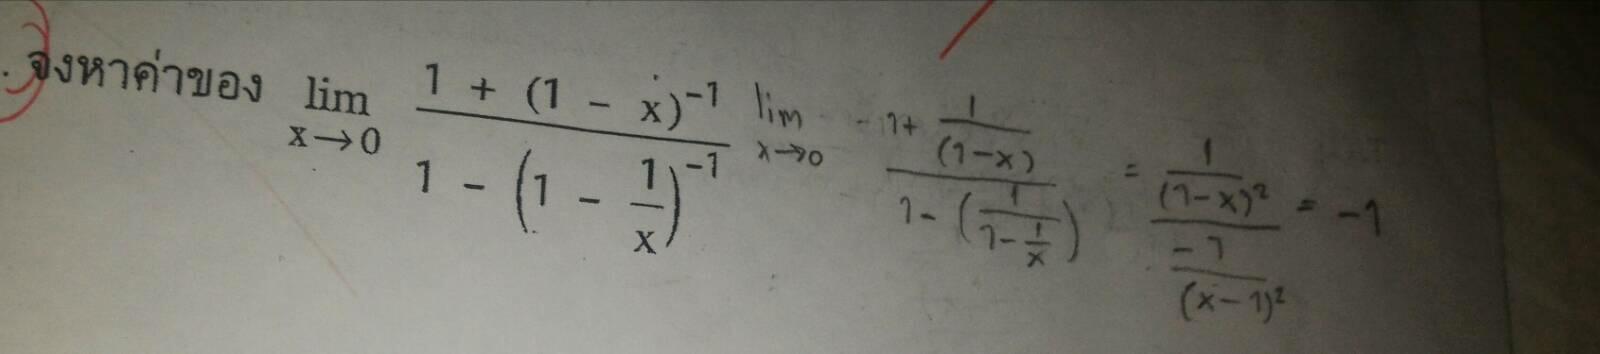 . จงหาค่าของ lim x→0 (1 + (1 - x)^-1) / (1 - (1 - 1/x)^-1)
lim x→0 (1 + 1/(1-x)) / (1 - (1/(1 - 1/x))) = (1/(1-x)²) / (-1/(x-1)²) = -1